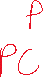 P
PC